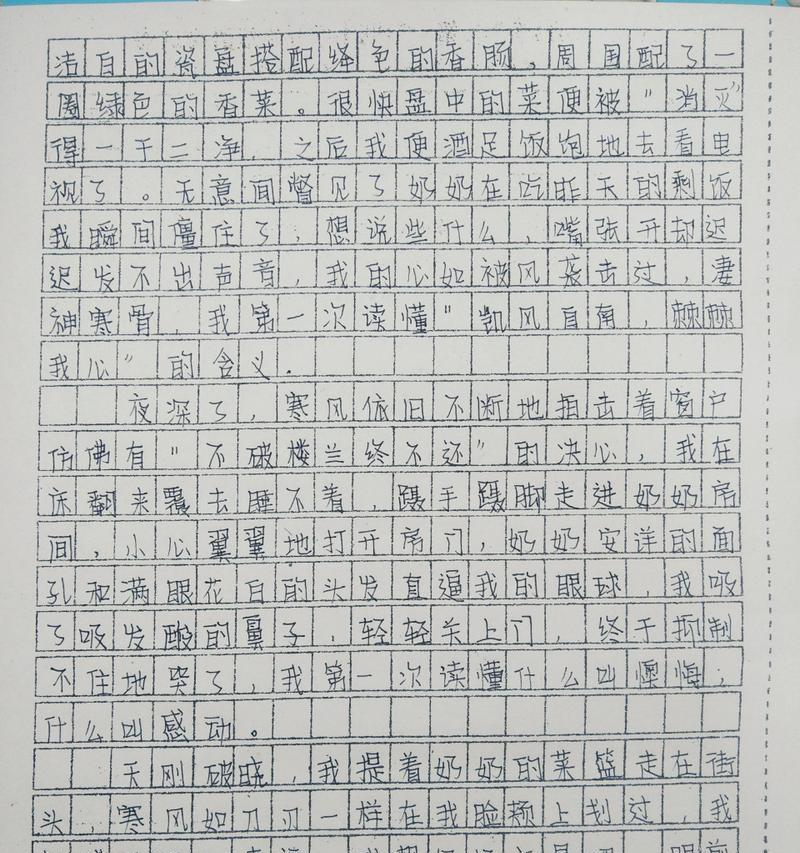 洁白的瓷盘搭配绛色的香肠，周围配了一
圈绿色的香菜。很快盘中的菜便被"消灭"
得一干二净，之后我便酒足饭饱地去看电
视了。无意间瞥见了奶奶在吃昨天的剩饭
我瞬间僵住了，想说些什么，嘴张开却迟
迟发不出声音，我的心如被风袭击过，凄
神寒骨，我第一次读懂"凯风自南，棘棘
我心"的含义。
夜深了，寒风依旧不断地拍击着窗户
仿佛有"不破楼兰终不还"的决心，我在
床翻来覆去睡不着，蹑手蹑脚走进奶奶房
间，小心翼翼地打开房门，奶奶安详的面
孔和满眼花白的头发直逼我的眼球，我吸
了吸发酸的鼻子，轻轻关上门，终于抑制
不住地哭了，我第一次读懂什么叫懊悔，
什么叫感动。
天刚破晓，我提着奶奶的菜篮走在街
头，寒风如刀刃一样在我脸颊上划过，我